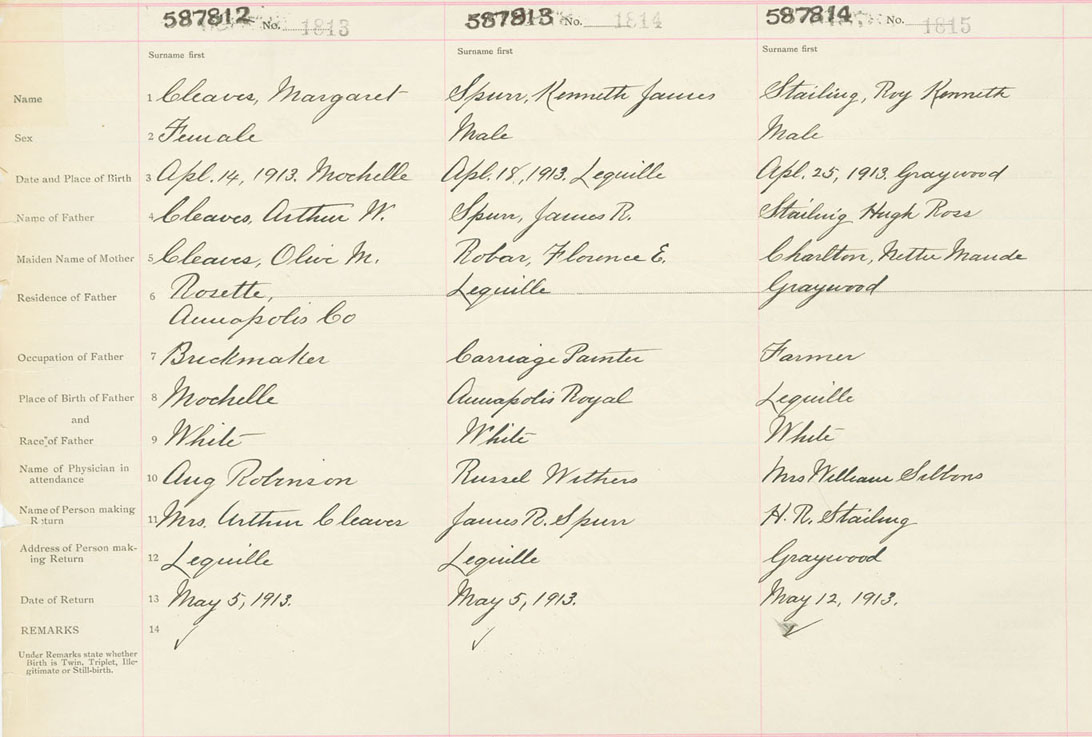 587812 No. 1813 587813 No. 1814 587814 No. 1815
Surname first Surname first Surname first
Name 1 Cleaves, Margaret Spurr, Kenneth James Stailing, Roy Kenneth
Sex 2 Female Male Male
Date and Place of Birth 3 Apl. 14, 1913. Mochelle Apl. 18, 1913. Lequille Apl. 25, 1913. Graywood
Name of Father 4 Cleaves, Arthur W. Spurr, James R. Stailing Hugh Ross
Maiden Name of Mother 5 Cleaves, Olive M. Robar, Florence E. Charlton, Nettie Maude
Residence of Father 6 Rosette, Lequille Graywood
Annapolis Co
Occupation of Father 7 Brickmaker Carriage Painter Farmer
Place of Birth of Father 8 Mochelle Annapolis Royal Lequille
and
Race of Father 9 White White White
Name of Physician in
attendance 10 Aug Robinson Russel Withers Mrs William Gibbons
Name of Person making
Return 11 Mrs. Arthur Cleaves James R. Spurr H. R. Stailing
Address of Person mak-
ing Return 12 Lequille Lequille Graywood
Date of Return 13 May 5, 1913. May 5, 1913. May 12, 1913.
REMARKS 14 ✓ ✓ ✓
Under Remarks state whether
Birth is Twin, Triplet, Ille-
gitimate or Still-birth.